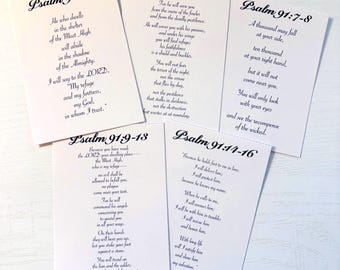 Psalm
He who dwells
in the shelter
of the Most High
will abide
in the shadow
of the Almighty.
I will say to the LORD,
"My refuge
and my fortress,
my God,
in whom I trust."
For he will save you
from the
and from the
He will cover you with his feathers
and under his wings
you will find refuge;
his faithfulness
is a shield
and buckler.
You will not fear
the terror of the night,
nor the arrow
that flies by day,
nor the pestilence
that stalks in darkness,
nor the destruction
that wastes at noonday.
Psalm 91:7-8
A thousand may fall
at your side,
ten thousand
at your right hand,
but it will not
come near you.
You will only look
with your eyes
and see the recompense
of the wicked.
Psalm 91:9-13
Because you have made
the LORD your dwelling place
the Most High,
who is my refuge
no evil shall
be allowed
to befall you,
no plague
come near your tent.
For he will
command his angels
concerning you
to guard you
in all your ways.
On their hands
they will bear you up,
lest you strike your foot
against a stone.
You will tread on
the lion and the adder;
Psalm 91:14-16
Because he holds fast to me in love,
I will deliver him;
I will protect him,
because he knows my name.
When he calls to me,
I will answer him;
I will be with him in trouble;
I will rescue him
and honor him.
With long life
I will satisfy him
and show him
my salvation.